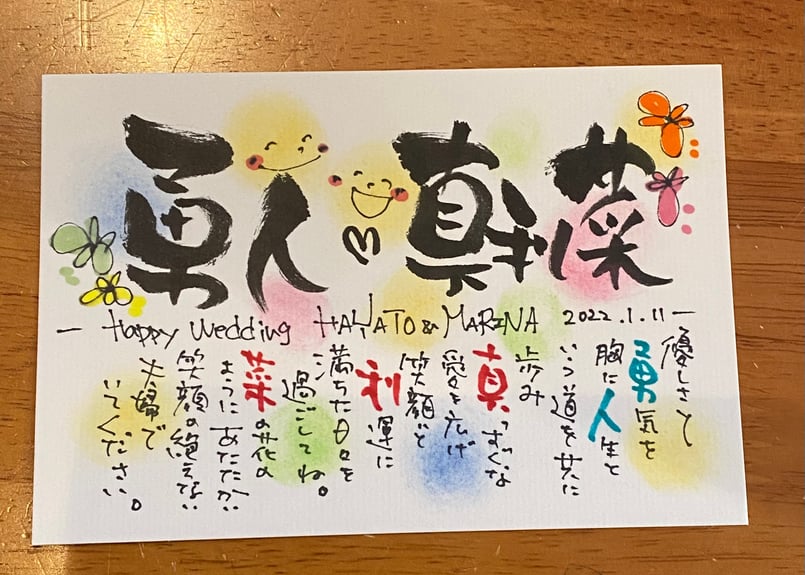 勇人♡真利菜
ー Happy Wedding HAYATO & MARINA 2022.1.11 ー
優しさと
勇気を
胸に人生と
いう道を共に
歩み
真っすぐな
愛を広げ
笑顔と
利運に
満ちた日々を
過ごしてね。
菜の花の
ようにあたたかい
笑顔の絶えない
夫婦で
いてください。